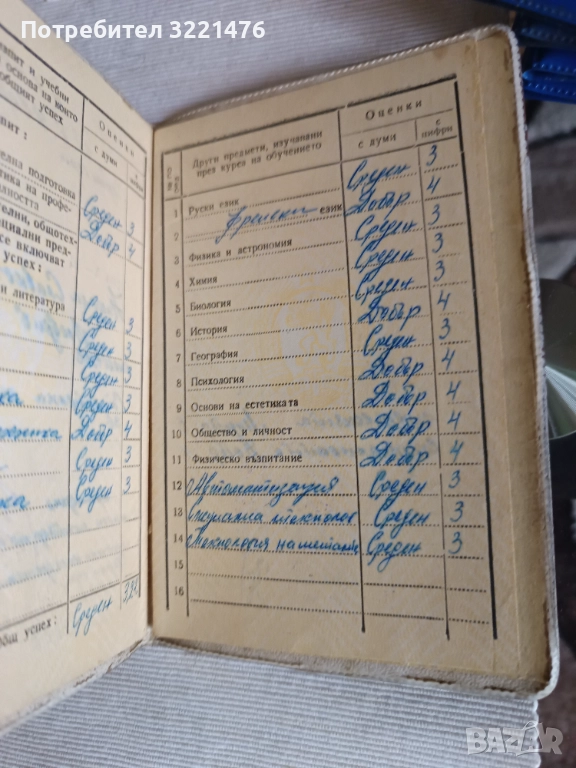 Потребител 3221476
пит и учебни
основа на които
общият успех
Оценки
с думи
с цифри
пит:
елна подготовка
тика на профе-
алността
Среден 3
телни, общотех-
ециални пред-
се включват
успех:
Добър 4
и литература
Среден 3
Среден 3
Среден 3
ка Среден 3
Добър 4
Среден 3
ка Среден 3
Среден
бщ успех:
№ по ред
Други предмети, изучавани
през курса на обучението
Оценки
с думи
с цифри
1 Руски език Среден 3
2 Френски език Добър 4
3 Физика и астрономия Среден 3
4 Химия Среден 3
5 Биология Среден 3
6 История Добър 4
7 География Среден 3
8 Психология Добър 4
9 Основи на естетиката Добър 4
10 Общество и личност Добър 4
11 Физическо възпитание Добър 4
12 Автоматизация Среден 3
13 Специална технолог Среден 3
14 Технология на метали Среден 3
15
16
BAZAR